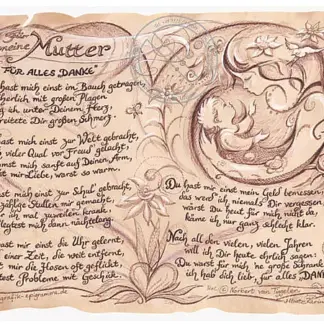 Für
meine
Mutter
FÜR ALLES „DANKE"
hast mich einst im Bauch getragen,
cherlich mit großen Plagen.
g ich unter Deinem Herz,
reitete Dir großen Schmerz.
hast mich einst zur Welt gebracht,
vieler Qual vor Freud' gelacht.
mst mich sanft auf Deinen Arm,
mir Liebe, warst so warm.
st mich einst zur Schul' gebracht,
zählge Stullen mir gemacht.
ich mal zuweilen krank,
legtest mich dann nächtelang.
st mir einst die Uhr gelernt,
einer Zeit, die weit entfernt,
t mir die Hosen oft geflickt,
test Probleme mit Geschick.
Du hast mir einst mein Geld bemessen,
das werd' ich niemals Dir vergessen
wärst Du heut' für mich nicht da,
käme ich nur ganz schlecht klar.
Nach all den vielen, vielen Jahren
will ich Dir heute ehrlich sagen:
Du warst für mich 'ne große Schranke
ich hab dich lieb, für alles „DAN
grafik-epigramme.de
© Norbert van Tiggelen